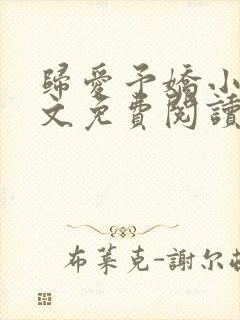 歸愛予嬌小
文免費閱讀
布萊克-謝尔